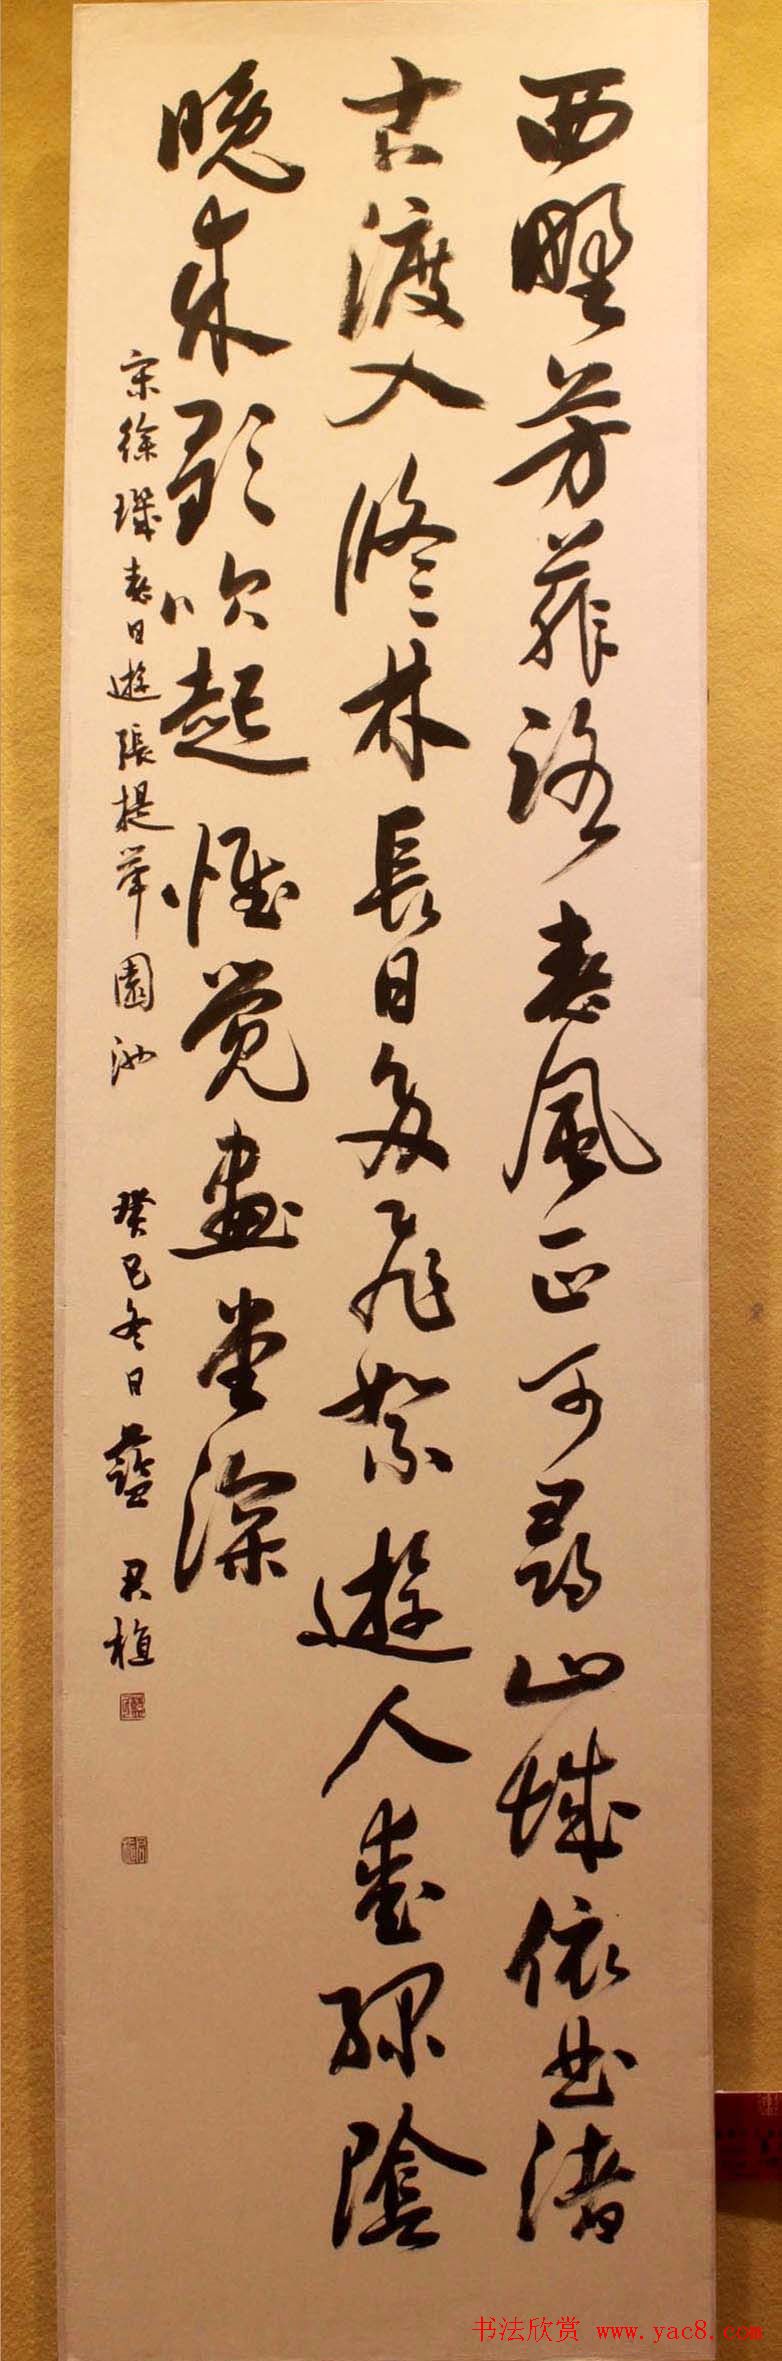 西野芳菲路春風正可尋山城依曲渚
古渡入修林長日多飛絮遊人愛綠陰
晚来歌吹起惟觉畫堂深
宋徐璣春日遊張提举園池 癸巳冬日藍君植
书法欣赏 www.yac8.com